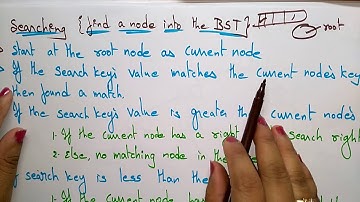 Searching {find a node into the BST}. root
start at the root node as current node
If the search key's value matches the current node's key
then found a match.
If the search key's value is greater the current node's
1. If the current node has a right search right
2. Else, no matching node in the
search key is less than the
1. If the current node has the